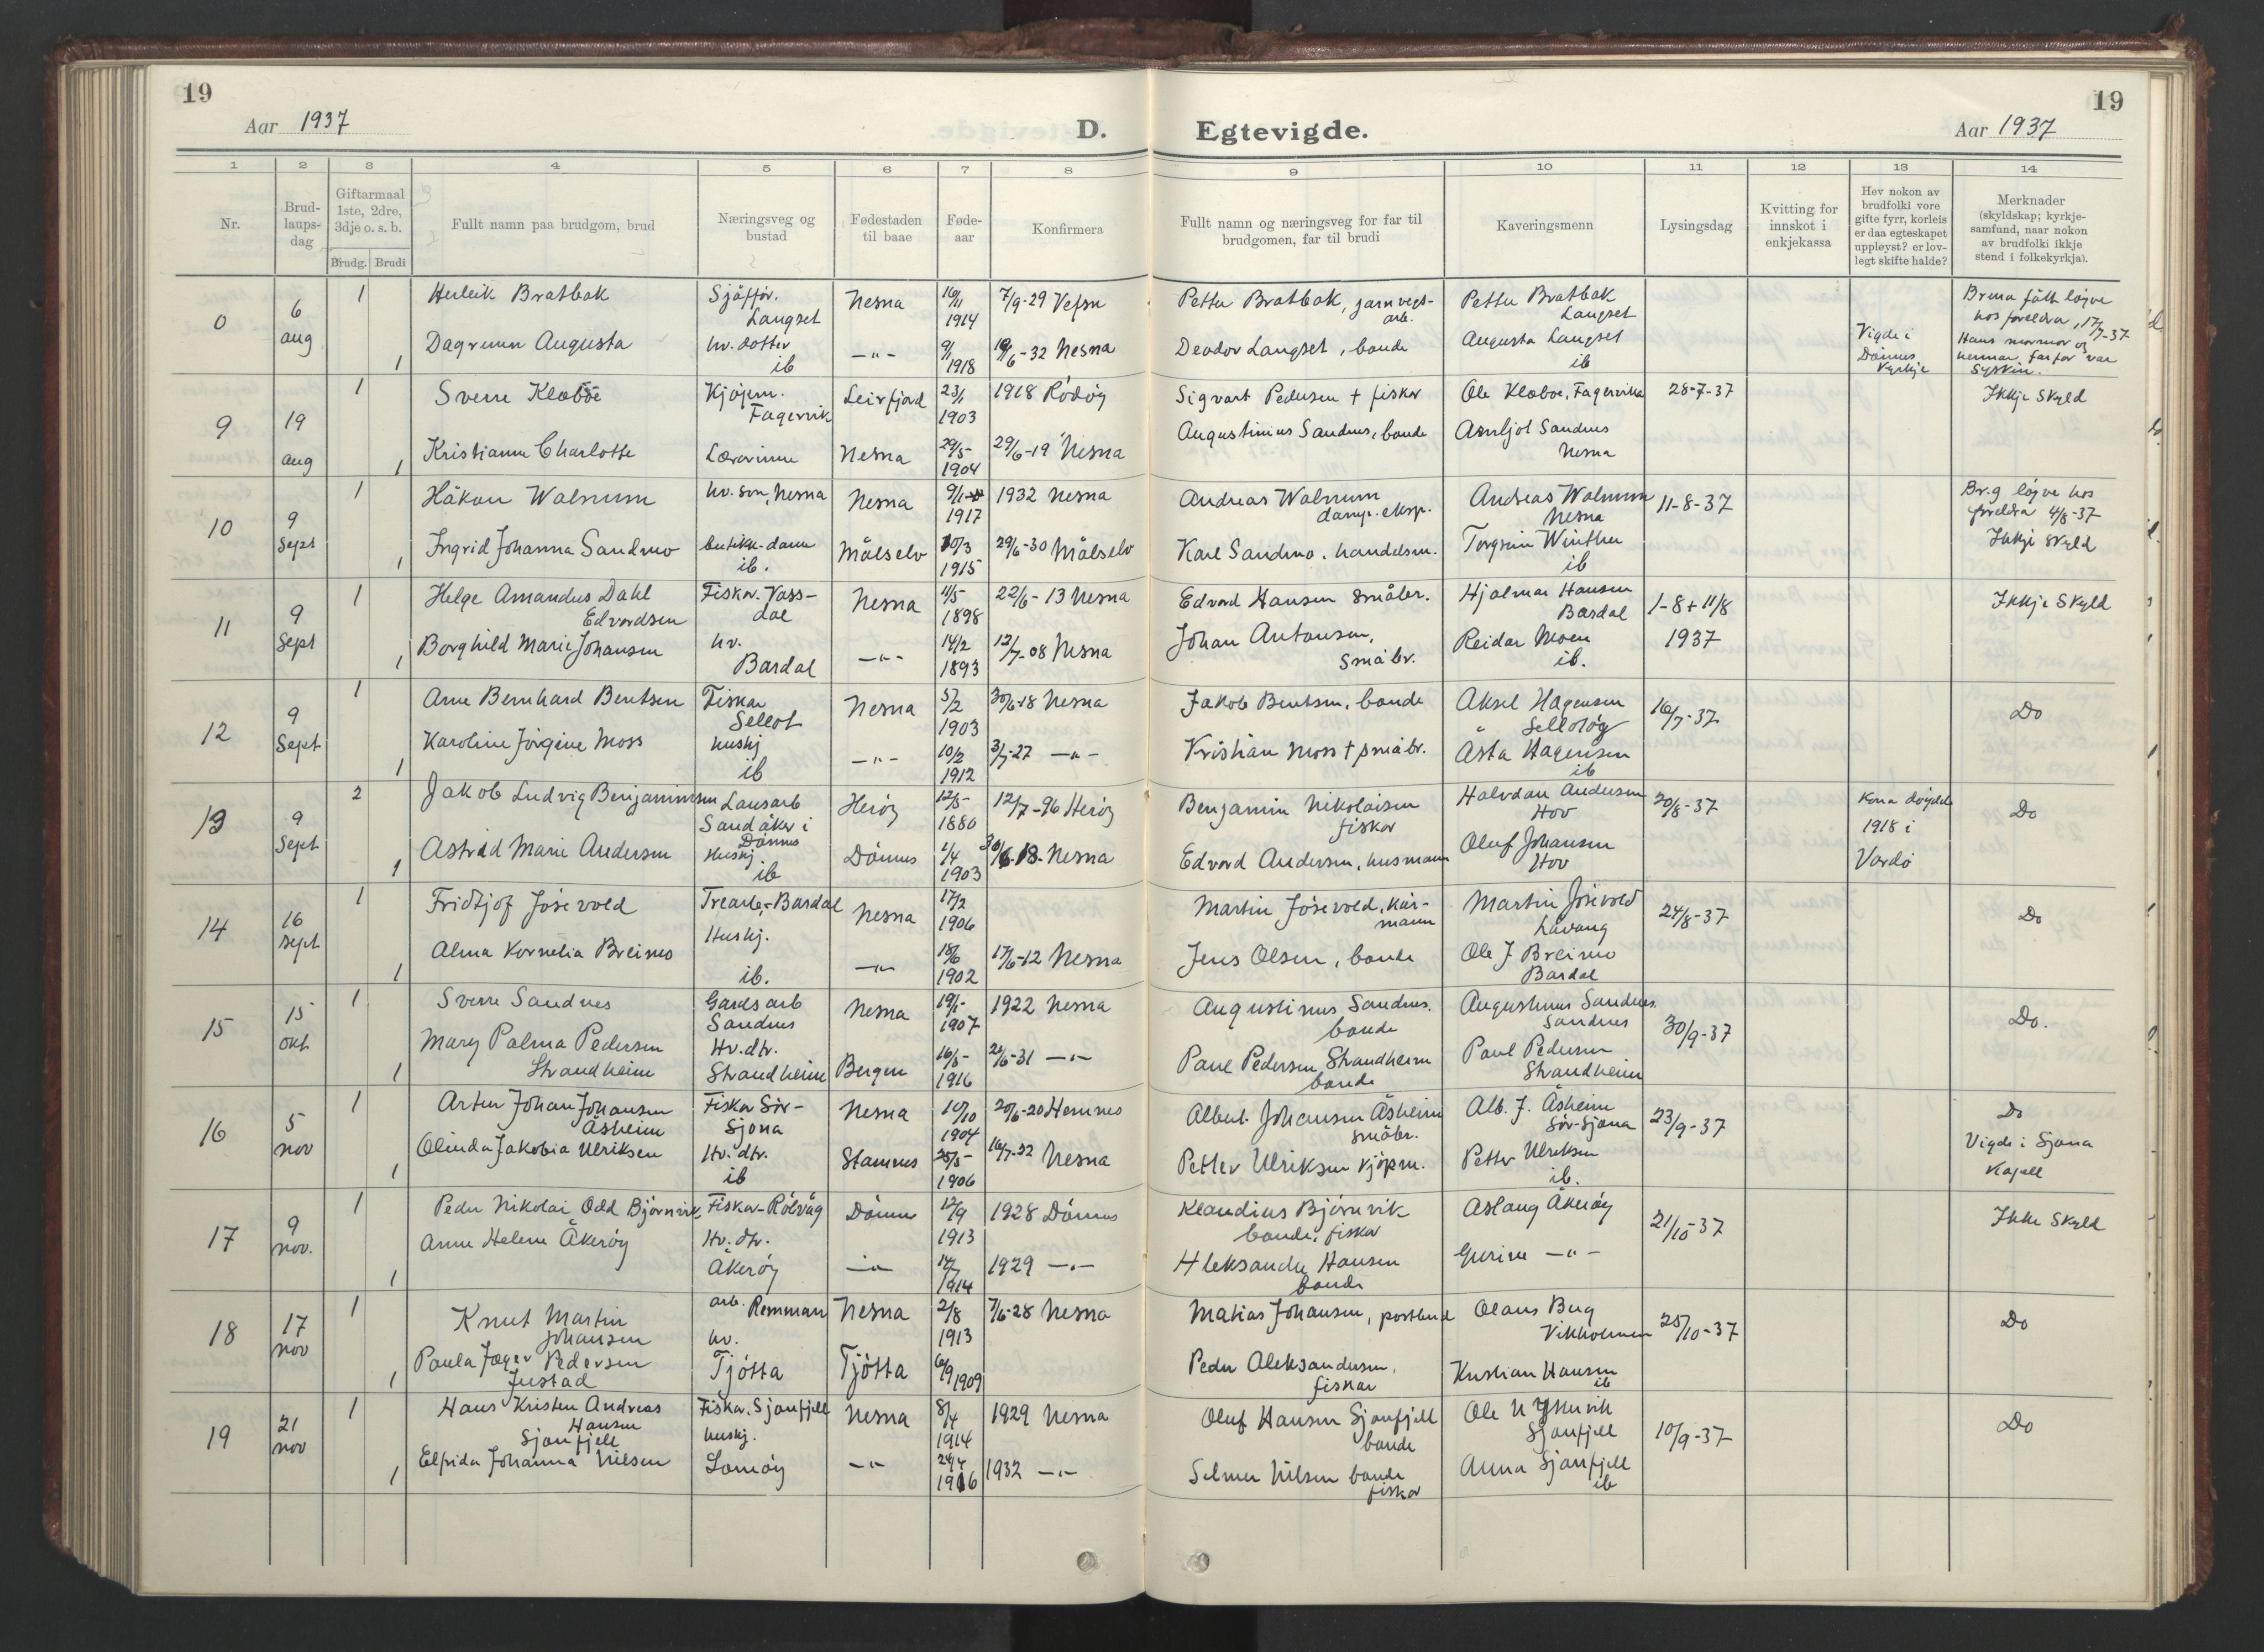 19
Aar 1937
D.
Egtevigde.
Aar 1937
19
1 2 3 4 5 6 7 8 9 10 11 12 13 14
Nr.
Brud-
laups-
dag
Giftarmaal
1ste, 2dre,
3dje o. s. b.
Brudg. Brudi
Fullt namn paa brudgom, brud
Næringsveg og
bustad
Fødestaden
til baae
Føde-
aar
Konfirmera
Fullt namn og næringsveg for far til
brudgomen, far til brudi
Kaveringsmenn
Lysingsdag
Kvitting for
innskot i
enkjekassa
Hev nokon av
brudfolki vore
gifte fyrr, korleis
er daa egteskapet
uppløyst? er lov-
legt skifte halde?
Merknader
(skyldskap; kyrkje-
samfund, naar nokon
av brudfolki ikkje
stend i folkekyrkja).
0 6 aug
1 Herleik Bratbak Sjåffør. Langset Nesna 16/11 1914 7/9-29 Vefsn Petter Bratbak, jarnvegs-arb. Petter Bratbak Langset
1 Dagrunn Augusta hv. dotter ib —"— 9/1 1918 19/6-32 Nesna Deodor Langset, bonde Augusta Langset ib
Vigde i Dønnes Kyrkje
Brura fått løyve hos foreldra, 17/7-37 Hans mormor og hennar farfar var syskin.
9 19 aug
1 Sverre Klæboe Kjøpm. Fagervik Leirfjord 23/1 1903 1918 Rødøy Sigvart Pedersen + fisker Ole Klæboe, Fagervika 28-7-37 Ikkje Skyld
1 Kristianne Charlotte Lærerinne Nesna 29/5- 1904 29/6-19 Nesna Augustinius Sandnes, bonde Arnljot Sandnes Nesna
10 9 Sept
1 Håkon Walnum hv. søn, Nesna Nesna 9/1 1917 1932 Nesna Andreas Walnum damp. eksp. Andreas Walnum Nesna 11-8-37 Br.g løyve hos foreldra 4/8-37
1 Ingrid Johanna Sandmo butikk-dame ib. Målselv 10/3 1915 29/6-30 Målselv Karl Sandmo, handelsm. Torgrim Winther ib Ikkje skyld
11 9 Sept
1 Helge Amandus Dahl Edvardsen Fisker. Vass-dal Nesna 11/5- 1898 22/6-13 Nesna Edvard Hansen småbr. Hjalmar Hansen Bardal 1-8 + 11/8 1937 Ikkje Skyld
1 Borghild Marie Johansen hv. Bardal —"— 14/2 1893 12/7-08 Nesna Johan Antonsen, småbr. Reidar Moen ib.
12 9 Sept
1 Arne Bernhard Bentsen Fisker Sellot Nesna 5/2 1903 30/6-18 Nesna Jakob Bentsen, bonde Aksel Hagensen Selløtøy 16/7-37 Do
1 Karoline Jørgine Moss hushj ib —"— 10/2 1912 3/7-27 —"— Kristian Moss + småbr. Åsta Hagensen ib
13 9 Sept
2 Jakob Ludvig Benjaminsen Lausarb Sandåker i Dønnes Herøy 12/5- 1880 12/7-96 Herøy Benjamin Nikolaisen fisker Halvdan Andersen Hov 20/8-37 Kona døydde 1918 i Vardø Do
1 Astrid Marie Andersen Huskj. ib Dønnes 1/4 1903 30/6-18-Nesna Edvard Andersen, husmann Oluf Johansen Hov
14 16 sept
1 Fridtjof Jøsevold Trearb.-Bardal Nesna 17/2 1906 Martin Jøsevold, kar-mann Martin Jøsevold Låvong 24/8-37 Do
1 Alma Kornelia Breimo Huskj. ib. —"— 18/6 1902 17/6-12 Nesna Jens Olsen, bonde Ole J Breimo Bardal
15 15 okt
1 Sverre Sandnes Gardsarb Sandnes Nesna 19/1- 1907 1922 Nesna Augustinus Sandnes. bonde Augustinus Sandnes. Sandnes 30/9-37 Do.
1 Mary Palma Pedersen Strandheim Hv.dtr. Strandheim Bergen 16/5- 1916 21/6-31 —"— Paul Pedersen Strandheim bonde Paul Pedersen Strandheim
16 5 nov
1 Artur Johan Johansen Åsheim Fisker Sør-Sjona Nesna 10/10 1904 20/6-20 Hemnes Albert Johansen Åsheim småbr. Alb. J. Åsheim Sør-Sjona 23/9-37 Do Vigde i Sjona Kapell
1 Olinda Jakobia Ulriksen Hv. dtr. ib Stamnes 25/5- 1906 16/7-22 Nesna Petter Ulriksen kjøpm. Petter Ulriksen ib.
17 9 nov.
1 Peder Nikolai Odd Bjørnvik, Fisker-Rølvåg Dønnes 12/9 1913 1928 Dønnes Klaudius Bjørnvik bonde, fisker Aslaug Åkerøy 21/10-37 Ikke Skyld
1 Anne Helene Åkerøy Hv. dtr. Åkerøy —"— 14/7 1914 1929 —"— Aleksander Hansen bonde Gurine —"—
18 17 nov
1 Knut Martin Johansen arb. Remman Nesna 2/8 1913 7/6-28 Nesna Matias Johansen, postbud Olaus Berg Vikholmen 25/10-37 Do
1 Paula Jæger Pedersen Justad hv. Tjøtta Tjøtta 6/9 1909 Peder Aleksandersen, fisker Kristian Hansen ib
19 21 nov
1 Hans Kristen Andreas Hansen Sjonfjell Fisker, Sjonfjell Nesna 8/4 1914 1929 Nesna Oluf Hansen Sjonfjell bonde Ole N Sjonfjell 10/9-37 Do
1 Elfrida Johanna Nilsen huskj. Lomøy —"— 24/4 1916 1932 —"— Selmer Nilsen bonde fisker Anna Sjonfjell ib